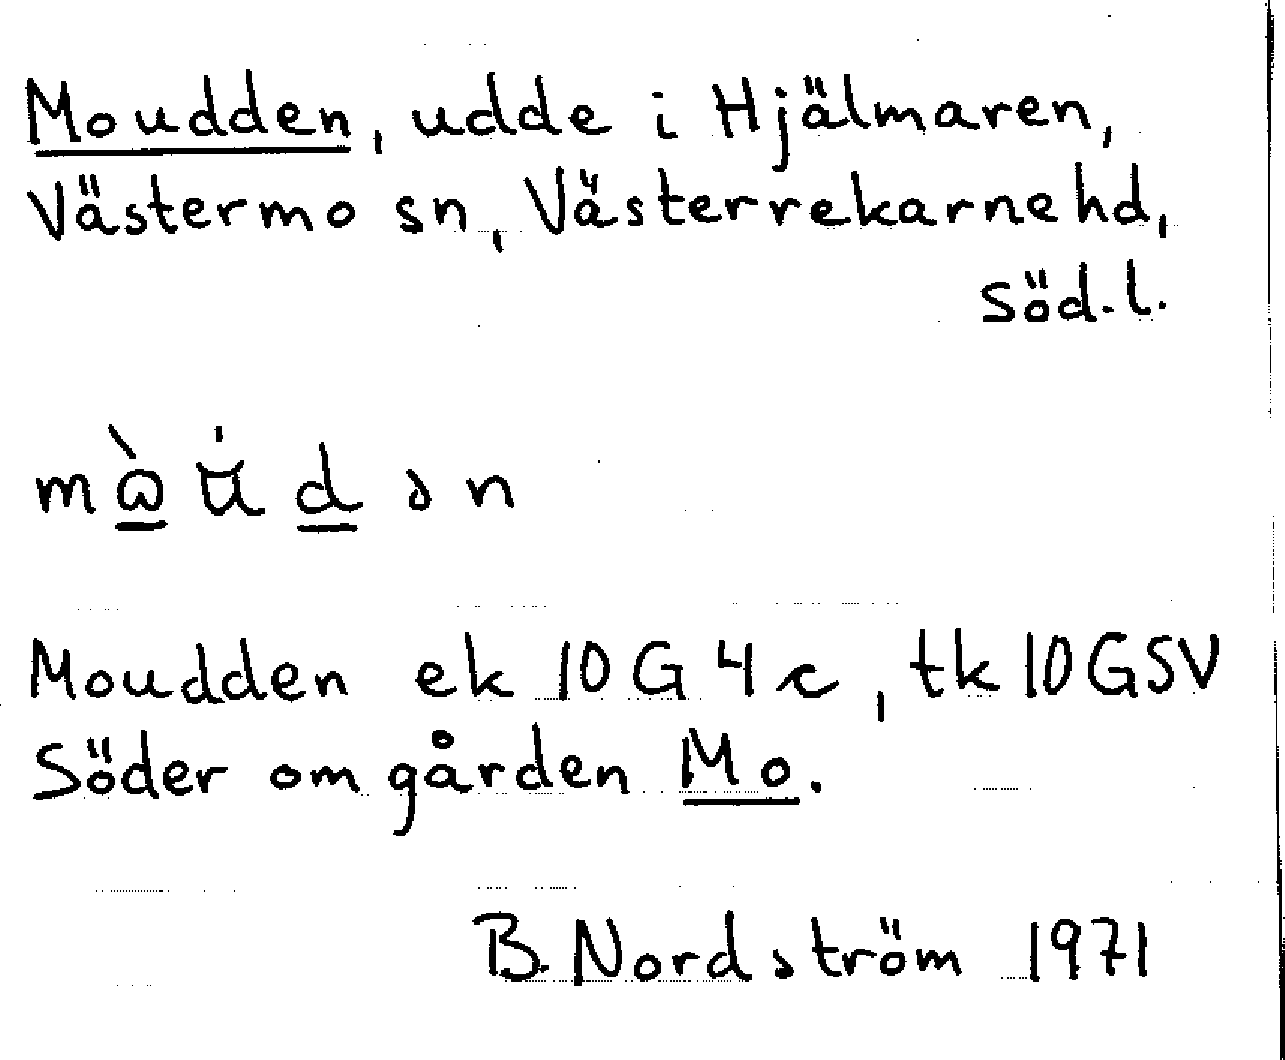 Moudden, udde i Hjälmaren,
Västermo sn, Västerrekarne hd,
Söd. l.
Moudden ek 10 G 4 c, tk 10 G SV
Söder om gården Mo.
B. Nordström 1971